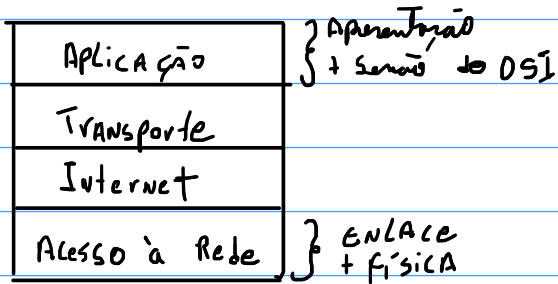 Aplicação
Apresentação
+ Sessão do OSI
Transporte
Internet
Acesso à Rede
Enlace
+ Física